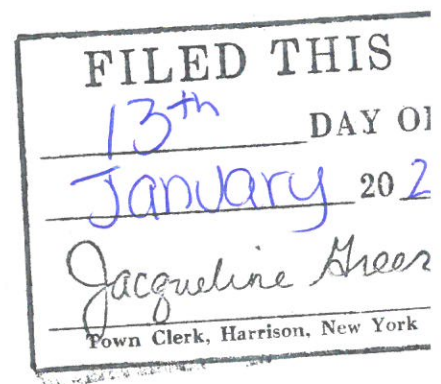 FILED THIS
13th DAY OF
January 202
Jacqueline Greer
Town Clerk, Harrison, New York